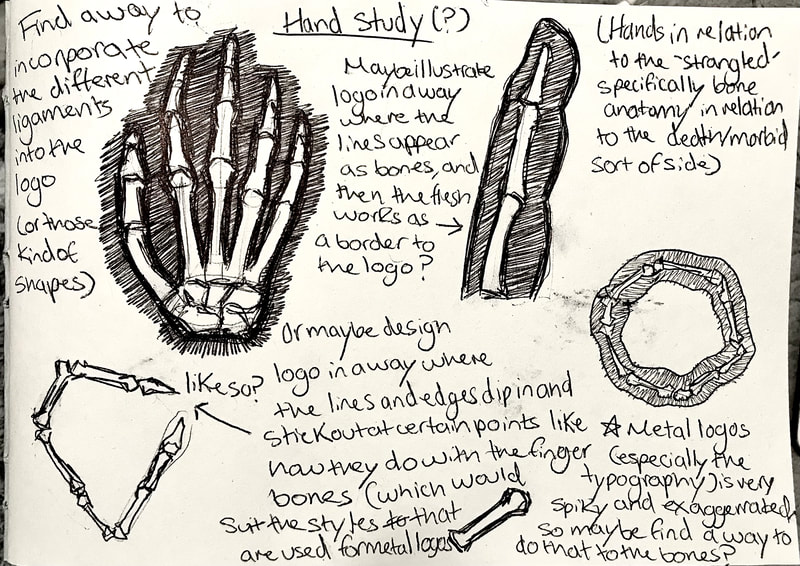 Hand Study (?)
Find a way to
incorporate
the different
ligaments
into the
logo
(or those
kind of
shapes)
Maybe illustrate
logo in a way
where the
lines appear
as bones, and
then the flesh
works as
a border to
the logo?
(Hands in relation
to the "strangled"
specifically bone
anatomy in relation
to the death/morbid
sort of side)
like so?
Or maybe design
logo in a way where
the lines and edges dip in and
stick out at certain points like
how they do with the finger
bones (which would
suit the styles that
are used for metal logos
☆ Metal logos
(especially the
typography) is very
spiky and exaggerated,
so maybe find a way to
do that to the bones?